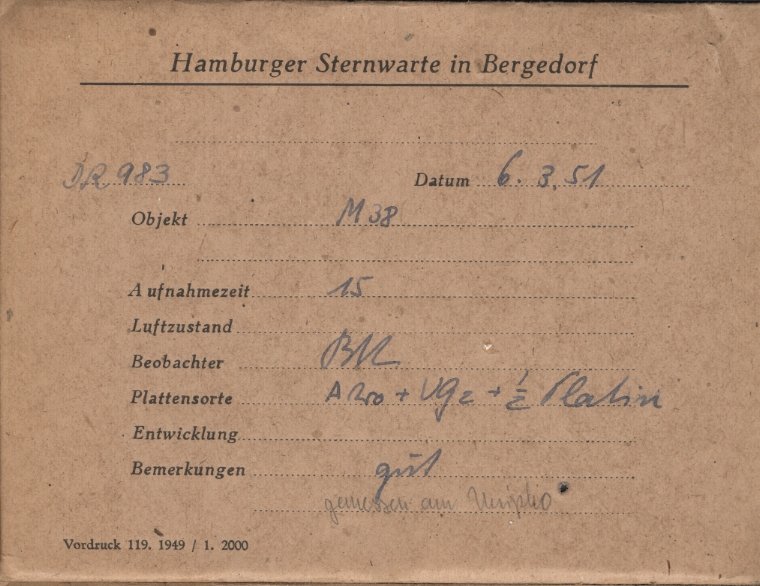 Hamburger Sternwarte in Bergedorf
DR 983 Datum 6. 3. 51
Objekt M 38
Aufnahmezeit 15
Luftzustand
Beobachter
Plattensorte + UG2 + 1/2 Platin
Entwicklung
Bemerkungen gut
gemessen am
Vordruck 119. 1949 / 1. 2000